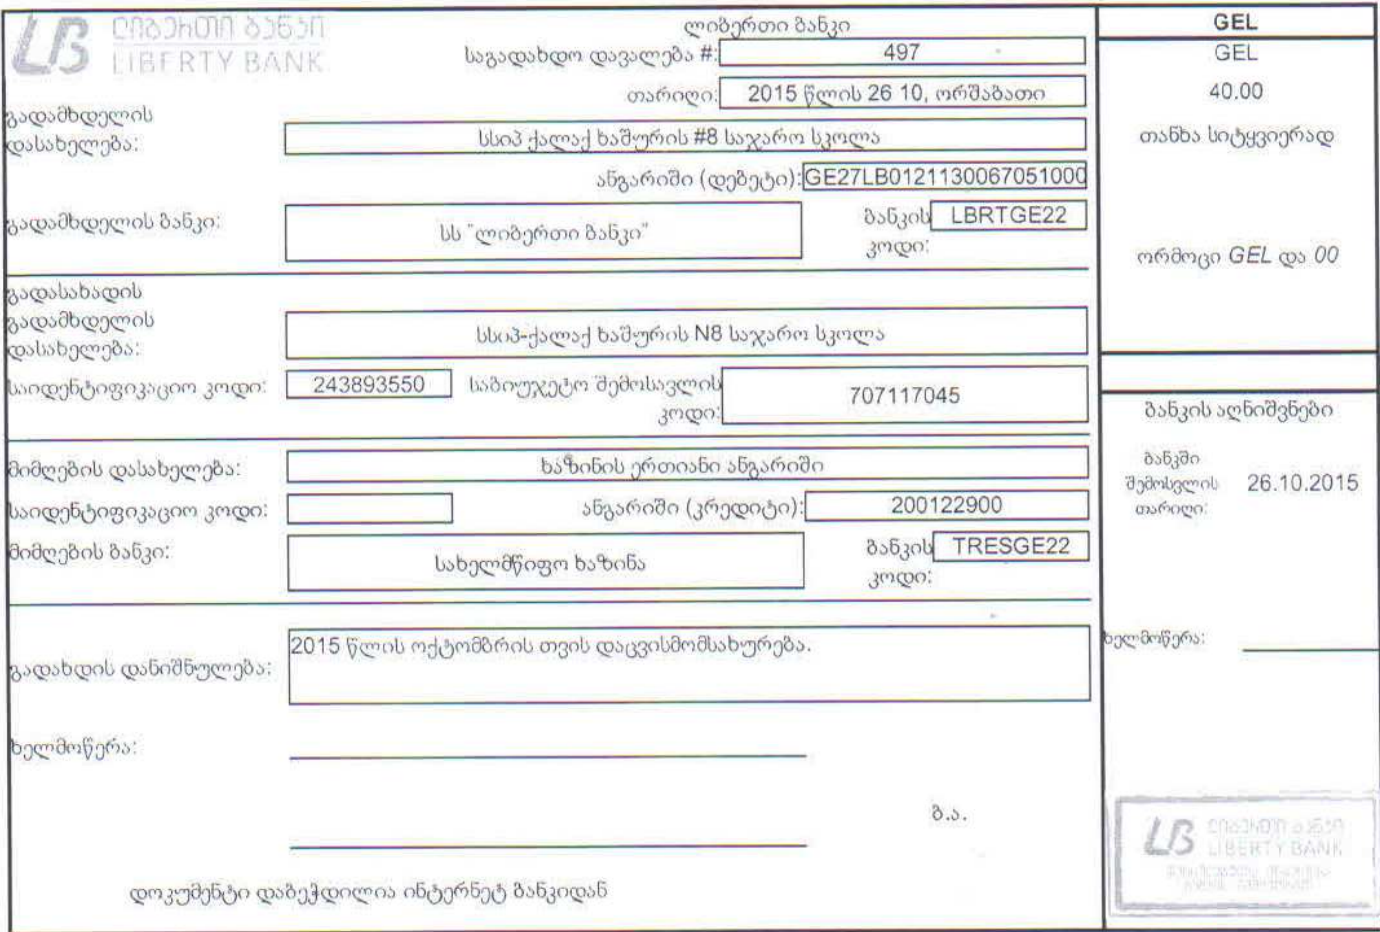 ლიბერთი ბანკი
LIBERTY BANK
ლიბერთი ბანკი
საგადახდო დავალება #: 497
თარიღი: 2015 წლის 26 10, ორშაბათი
გადამხდელის
დასახელება: სსიპ ქალაქ ხაშურის #8 საჯარო სკოლა
ანგარიში (დებეტი): GE27LB0121130067051000
გადამხდელის ბანკი: სს "ლიბერთი ბანკი" ბანკის LBRTGE22
კოდი:
გადასახადის
გადამხდელის
დასახელება: სსიპ-ქალაქ ხაშურის N8 საჯარო სკოლა
საიდენტიფიკაციო კოდი: 243893550 საბიუჯეტო შემოსავლის
კოდი: 707117045
მიმღების დასახელება: ხაზინის ერთიანი ანგარიში
საიდენტიფიკაციო კოდი: ანგარიში (კრედიტი): 200122900
მიმღების ბანკი: სახელმწიფო ხაზინა ბანკის TRESGE22
კოდი:
გადახდის დანიშნულება: 2015 წლის ოქტომბრის თვის დაცვისმომსახურება.
ხელმოწერა:
ბ.ა.
დოკუმენტი დაბეჭდილია ინტერნეტ ბანკიდან
GEL
GEL
40.00
თანხა სიტყვიერად
ორმოცი GEL და 00
ბანკის აღნიშვნები
ბანკში
შემოსვლის 26.10.2015
თარიღი:
ხელმოწერა:
ლიბერთი ბანკი
LIBERTY BANK